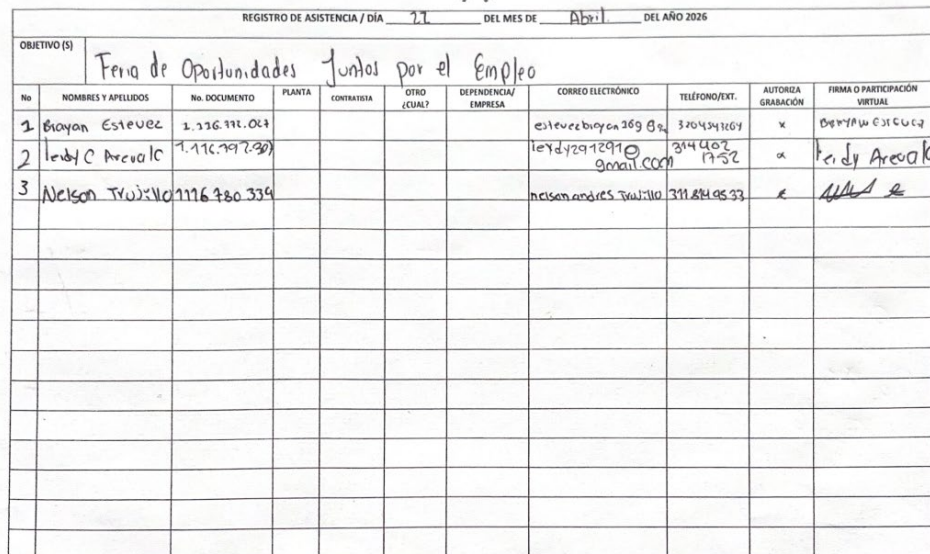 REGISTRO DE ASISTENCIA / DÍA 22 DEL MES DE Abril. DEL AÑO 2026
OBJETIVO (S)
Feria de Oportunidades Juntos por el Empleo
No NOMBRES Y APELLIDOS No. DOCUMENTO PLANTA CONTRATISTA OTRO ¿CUAL? DEPENDENCIA/ EMPRESA CORREO ELECTRÓNICO TELÉFONO/EXT. AUTORIZA GRABACIÓN FIRMA O PARTICIPACIÓN VIRTUAL
1 Brayan Estevez x
2 leidy C Arevalo leydy291291@ gmail.com 314402 1752 x Leidy Arevalo
3 Nelson Trujillo 1116 780 339 nelson andres Trujillo x